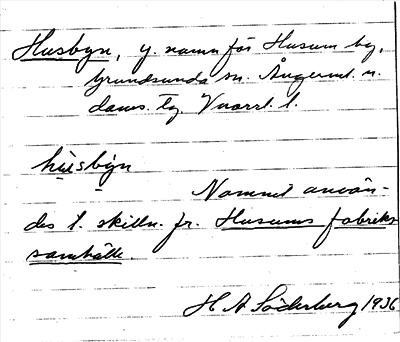 Husbyn, y. namn för Husum by,
Grundsunda sn. Ångerml. n.
doms. tg. Vnorrl. l.
hùsbỳn
Namnet använ-
des t. skilln. fr. Husums fabriks
samhälle.
H. A. Söderberg 1936